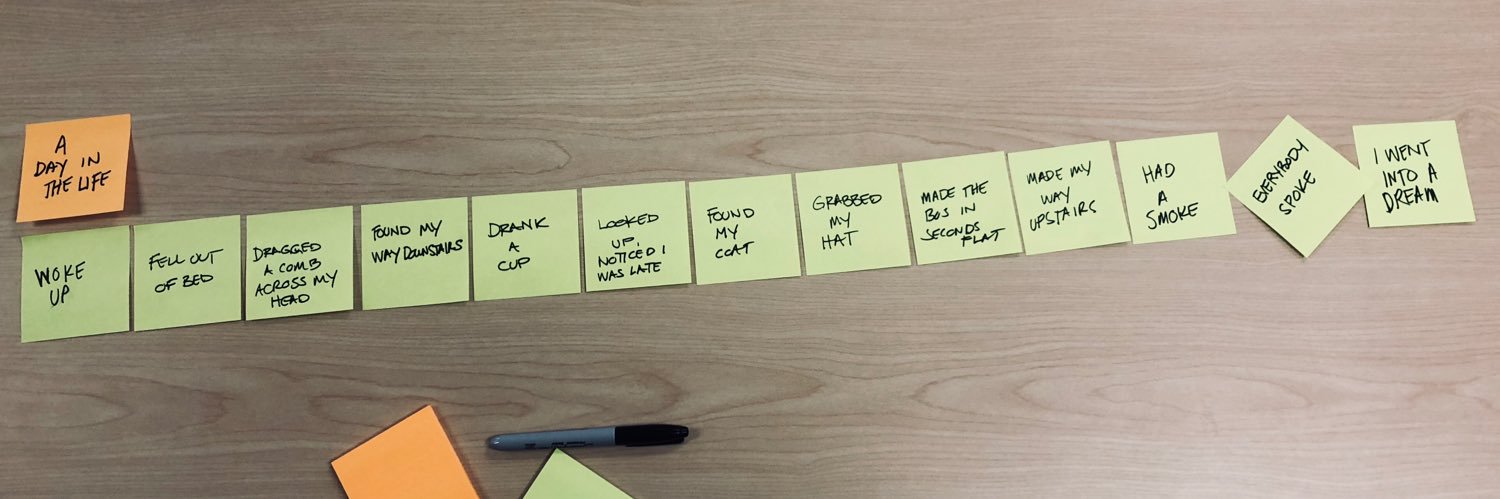 A
DAY IN
THE LIFE
WOKE
UP
FELL OUT
OF BED
DRAGGED
A COMB
ACROSS MY
HEAD
FOUND MY
WAY DOWNSTAIRS
DRANK
A
CUP
LOOKED
UP,
NOTICED I
WAS LATE
FOUND
MY
COAT
GRABBED
MY
HAT
MADE THE
BUS IN
SECONDS
FLAT
MADE MY
WAY
UPSTAIRS
HAD
A
SMOKE
EVERYBODY
SPOKE
I WENT
INTO A
DREAM